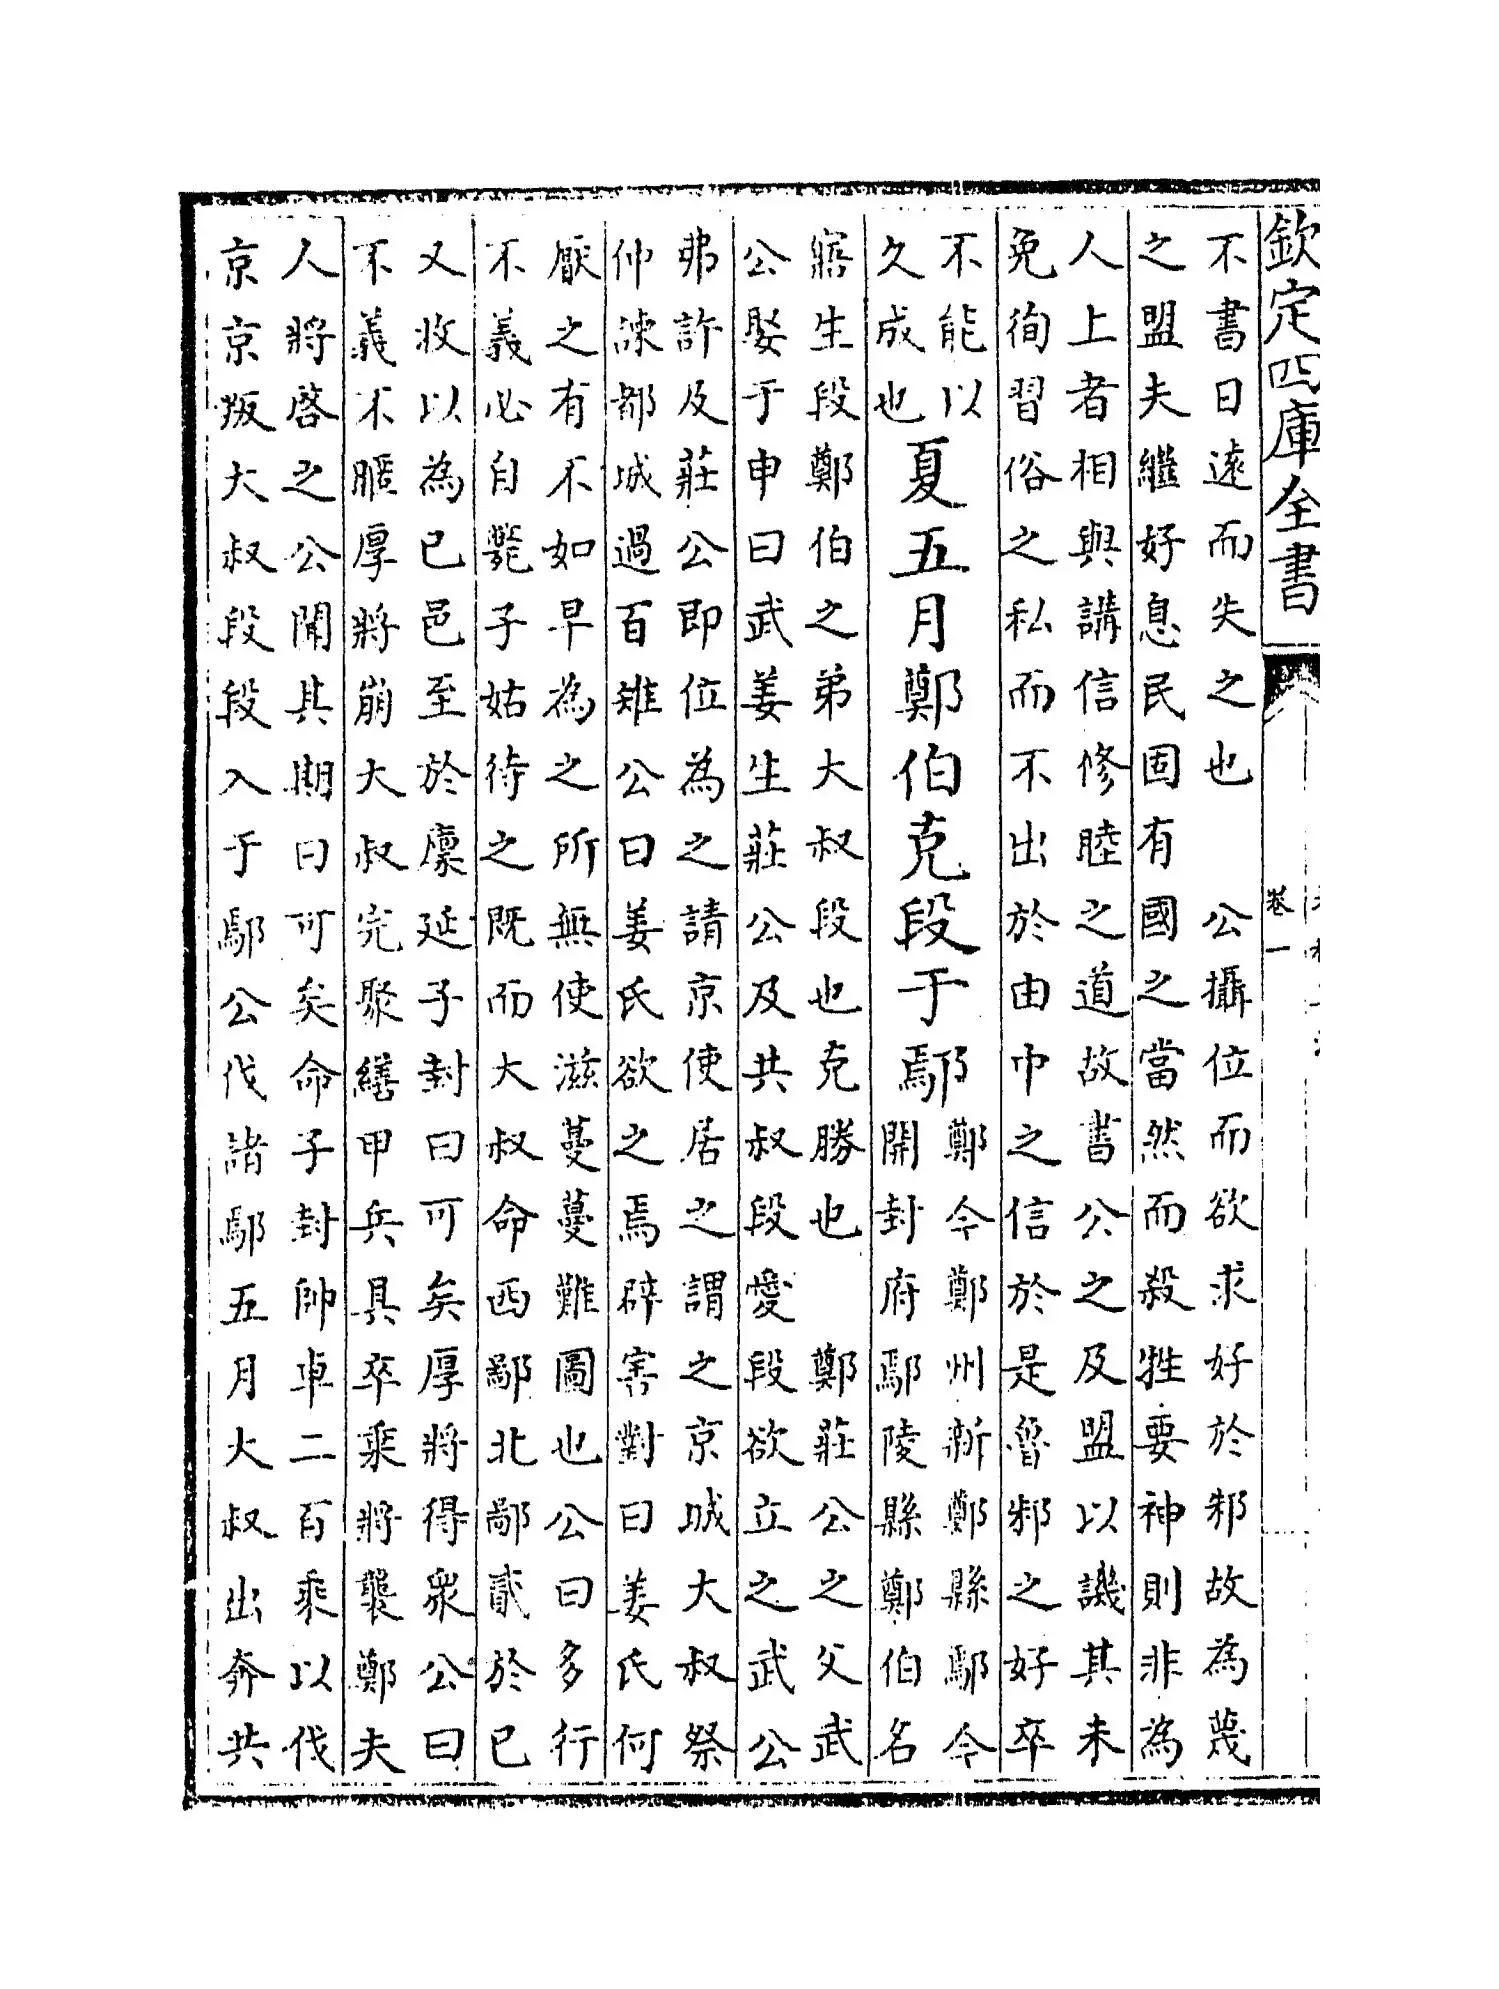 欽定四庫全書
卷一
不書日遠而失之也　公攝位而欲求好於邾故為蔑
之盟夫繼好息民固有國之當然而殺牲要神則非為
人上者相與講信修睦之道故書公之及盟以譏其未
免徇習俗之私而不出於由中之信於是魯邾之好卒
不能以
久成也
夏五月鄭伯克段于鄢
鄭今鄭州新鄭縣鄢今
開封府鄢陵縣鄭伯名
寤生段鄭伯之弟大叔段也克勝也　鄭莊公之父武
公娶于申曰武姜生莊公及共叔段愛段欲立之武公
弗許及莊公即位為之請京使居之謂之京城大叔祭
仲諫都城過百雉公曰姜氏欲之焉辟害對曰姜氏何
厭之有不如早為之所無使滋蔓蔓難圖也公曰多行
不義必自斃子姑待之既而大叔命西鄙北鄙貳於已
又收以為已邑至於廩延子封曰可矣厚將得衆公曰
不義不暱厚將崩大叔完聚繕甲兵具卒乘將襲鄭夫
人將啓之公聞其期曰可矣命子封帥車二百乘以伐
京京叛大叔段段入于鄢公伐諸鄢五月大叔出奔共